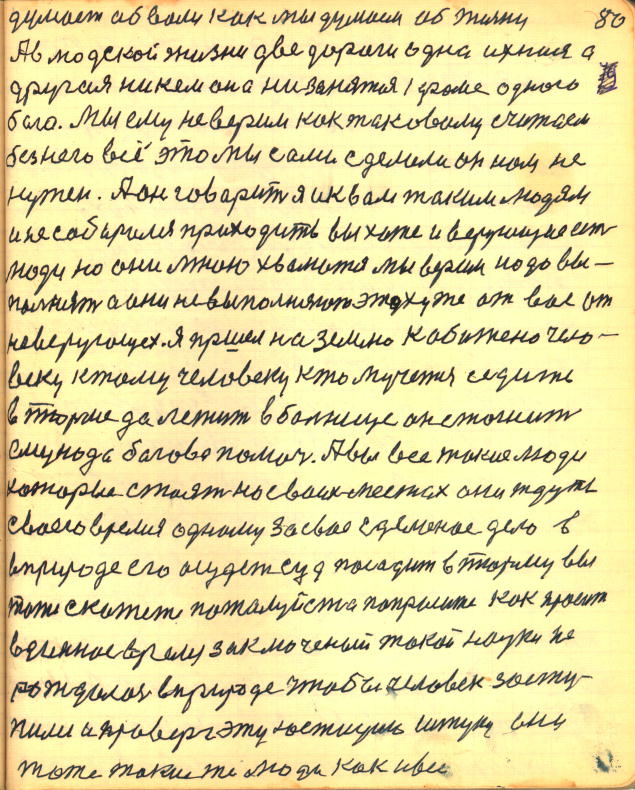 думает об воли как мы думаем об жизни 80
А в людской жизни две дороги одна ихняя а
другая никем она ни занятая кроме одного
бога. Мы ему неверим как таковому считаем
без него всё это мы сами сделали он нам не
нужен. А он говарит я и к вам таким людям
и не сабирался приходить вы хоть и верующие есть
люди но они мною хвалятся мы верим надо вы-
полнять а они не выполняют это хуже от вас от
неверующех. Я пришел на землю к обижено чело-
веку к тому человеку кто мучется седить
в тюрме да лежит в бальнице он стогнит
ему нада багова помоч. А вы все такие люди
которые стоят на своих местах они ждуть
своего время одному за свое сделоное дело в
в природе его асудет суд посадит в тюрму вы
тоже скажете пожалуйста попросите как просит
в данное время заключеный такой науки не
рождалась в природе чтобы человек засту-
пили и проверг эту
тоже такие же люди как и все